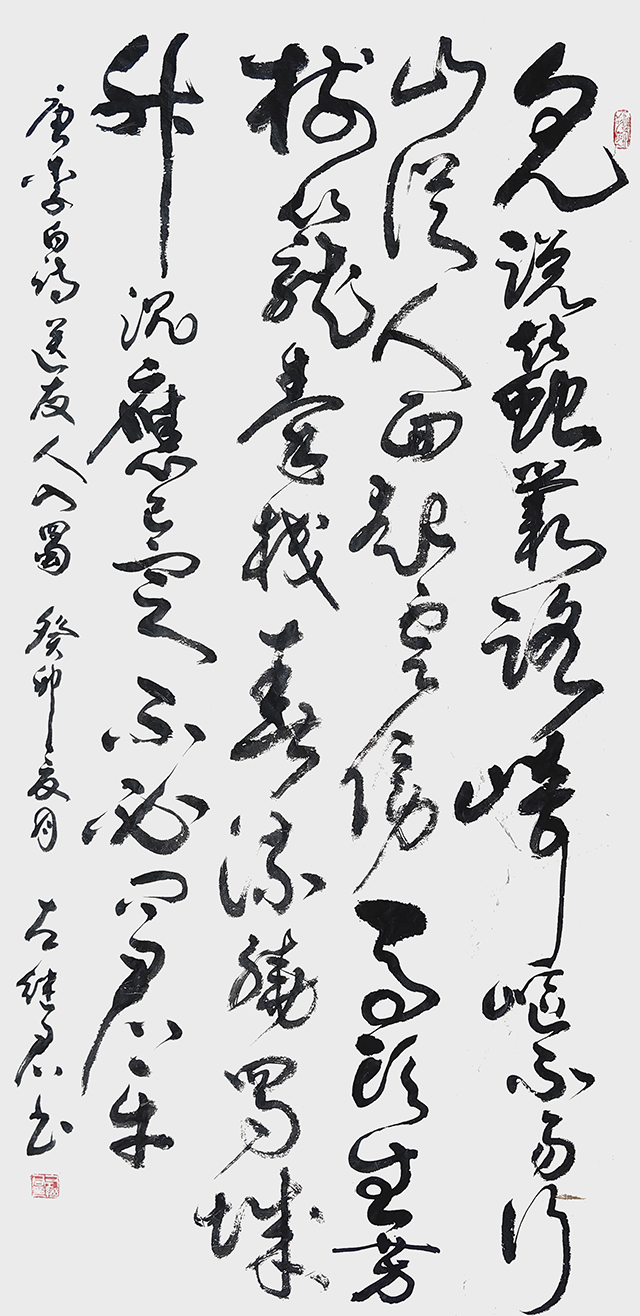 見説蠶叢路崎嶇不易行
山從人面起雲傍馬頭生芳
樹籠秦棧春流繞蜀城
升沉應已定不必問君平
唐李白詩送友人入蜀 癸卯夏月 左継君书